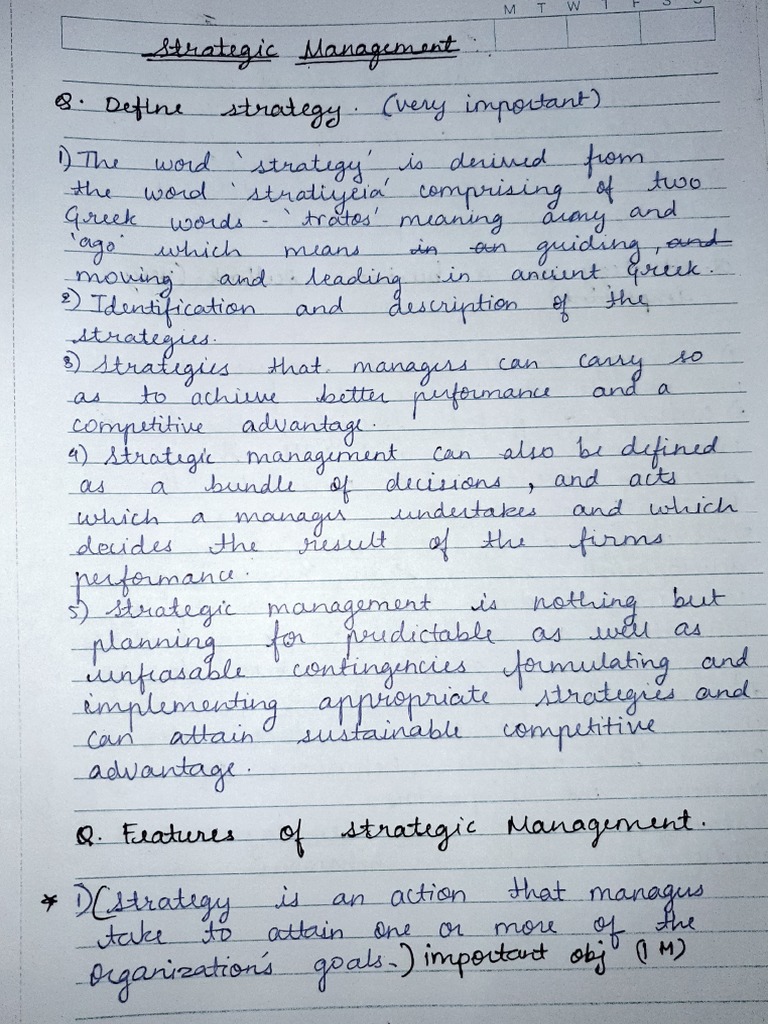 M T W T F S S
Strategic Management
Q. Define strategy. (very important)
1) The word 'strategy' is derived from
the word 'stratiyeia' comprising of two
Greek words - 'tratos' meaning army and
'ago' which means in an guiding, and
moving and leading in ancient Greek.
2) Identification and description of the
strategies.
3) Strategies that managers can carry so
as to achieve better performance and a
competitive advantage.
4) Strategic management can also be defined
as a bundle of decisions, and acts
which a manager undertakes and which
decides the result of the firms
performance.
5) Strategic management is nothing but
planning for predictable as well as
unfeasable contingencies formulating and
implementing appropriate strategies and
can attain sustainable competitive
advantage.
Q. Features of strategic Management.
* 1) (Strategy is an action that managers
take to attain one or more of the
organization's goals-) important obj (1 M)